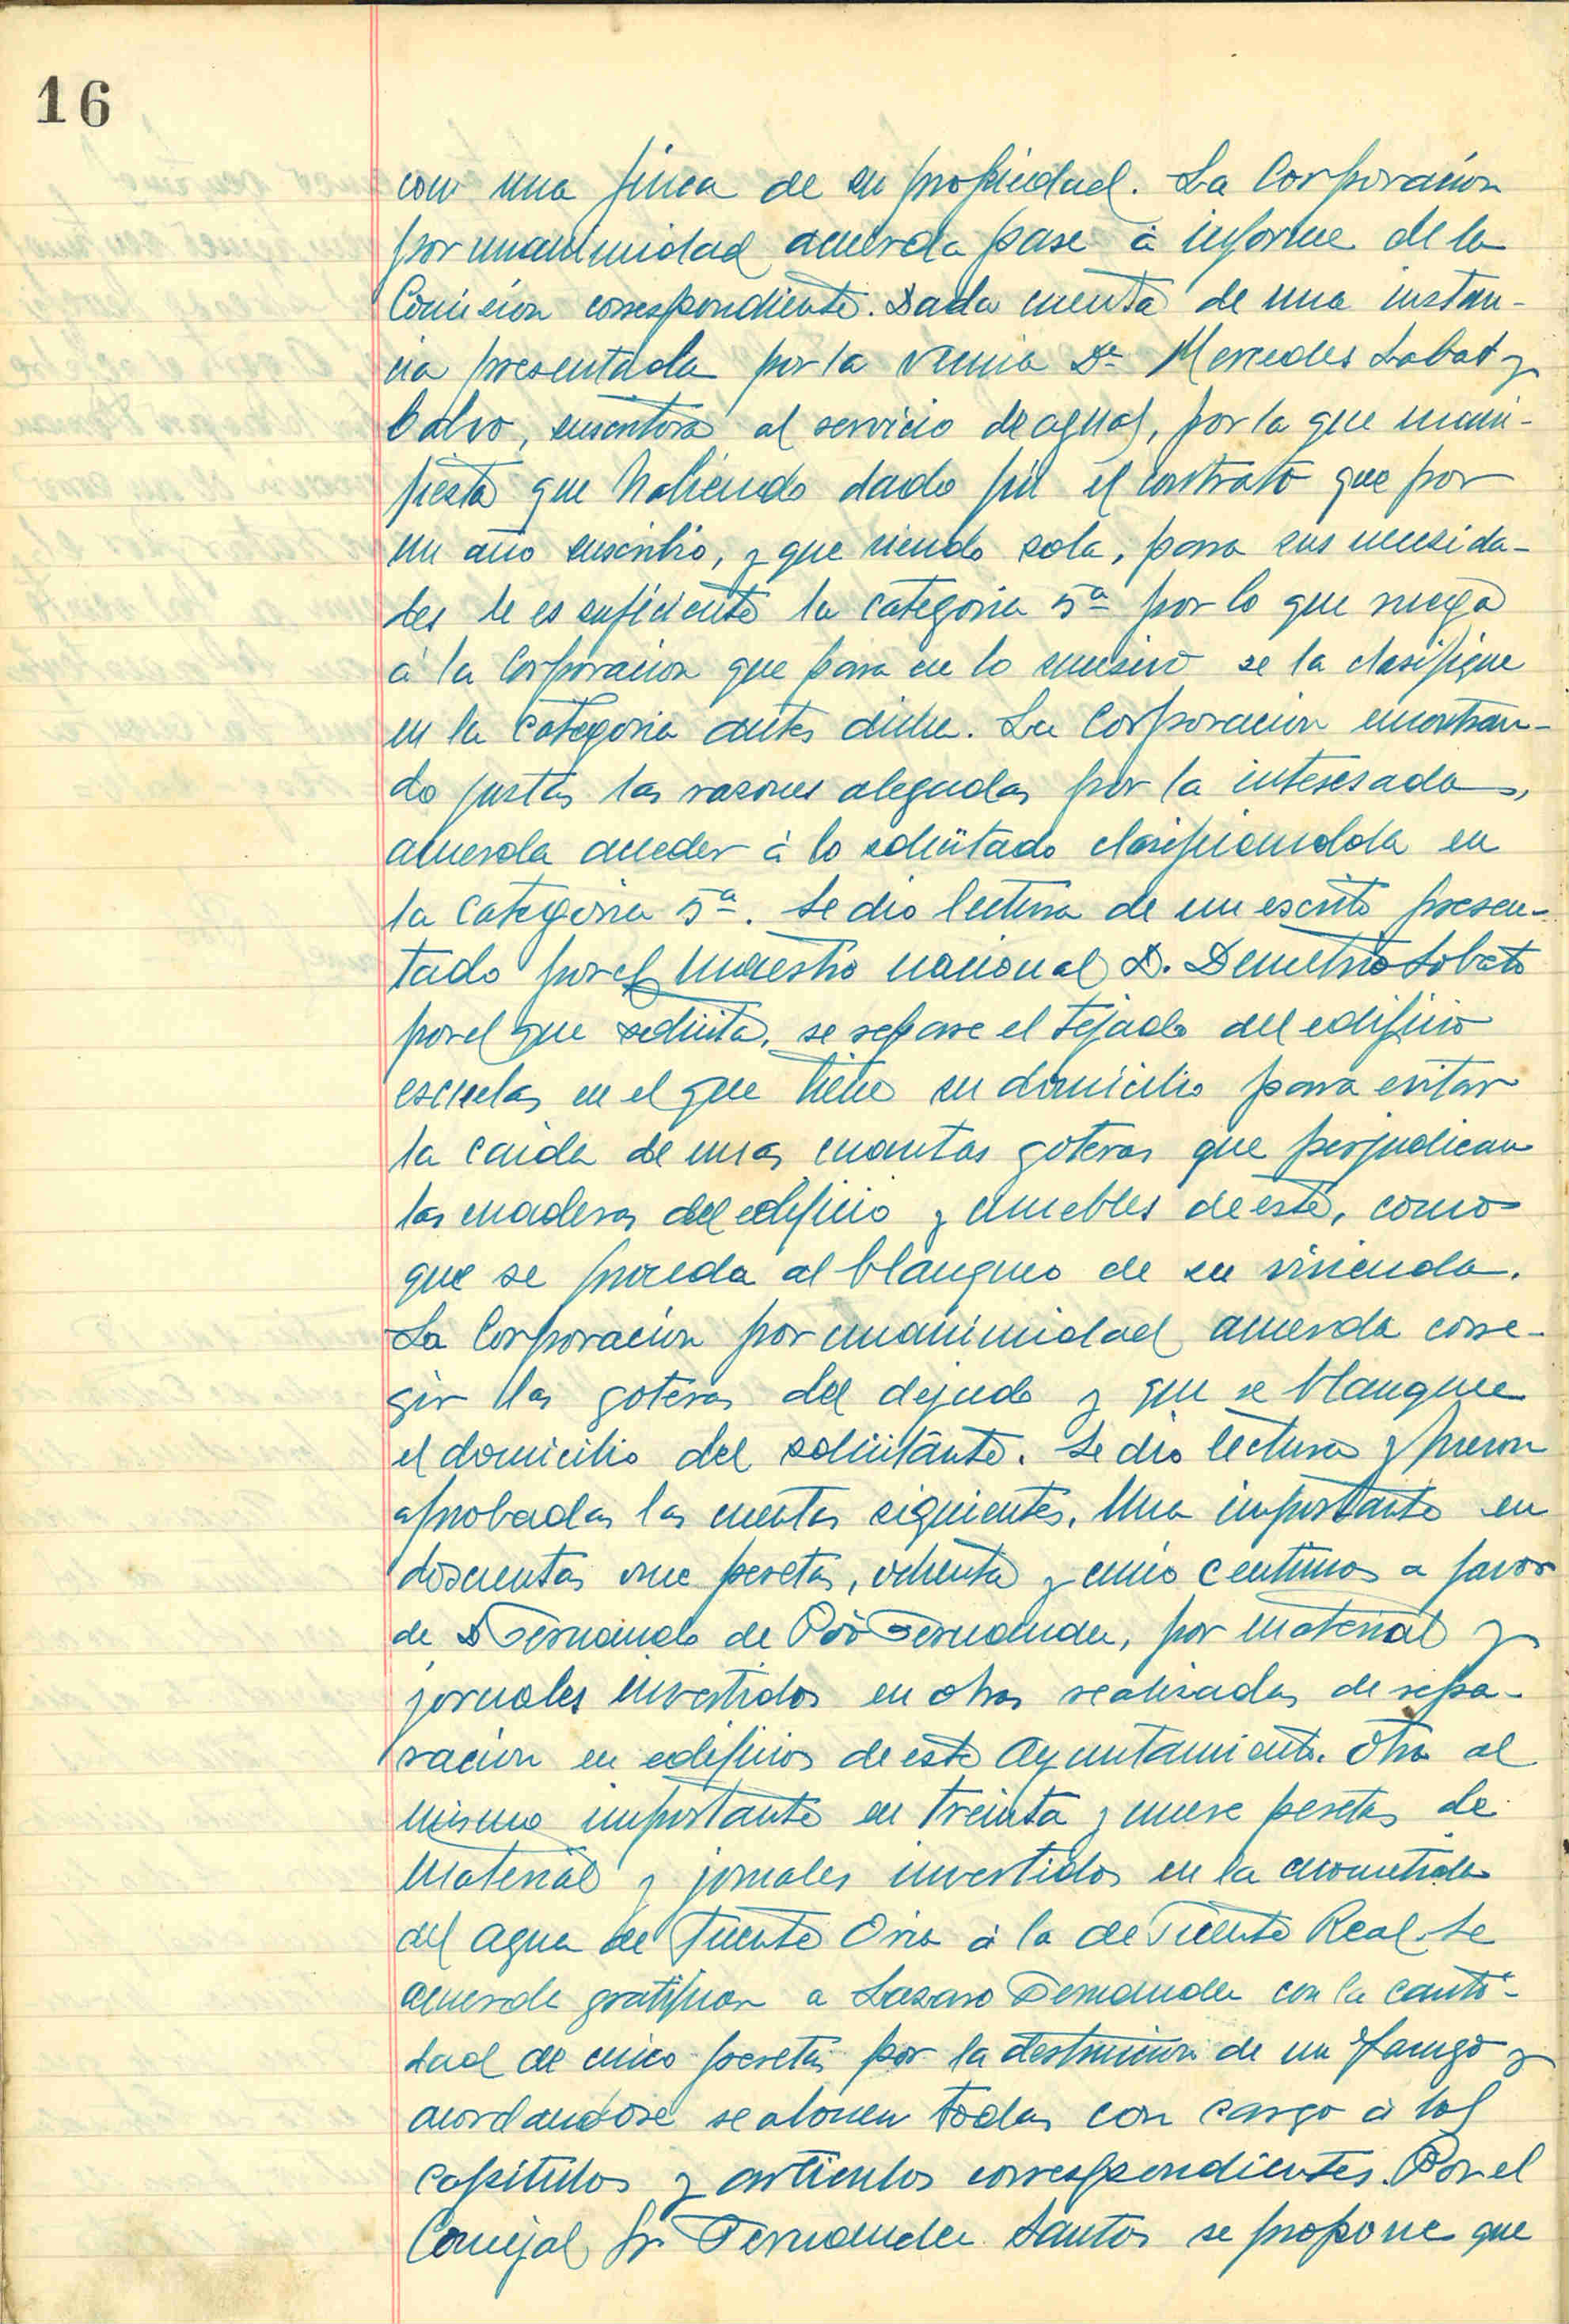 16
con una finca de su propiedad. La Corporación
por unanimidad acuerda pase à informe de la
Comision correspondiente. Dada cuenta de una instan-
cia presentada por la vecina Dª Mercedes Labat y
Calvo, suscritora al servicio de aguas, por la que mani-
fiesta que habiendo dado fin el contrato que por
un año suscribio, y que siendo sola, para sus necesida-
des le es suficiente la categoria 5ª por lo que ruega
à la Corporacion que para en lo sucesivo se la clasifique
en la categoria antes dicha. La Corporacion encontran-
do justas las razones alegadas por la interesada,
acuerda acceder à lo solicitado clasificandola en
la categoria 5ª. Se dio lectura de un escrito presen-
tado por el maestro nacional D. Demetrio Lobato
por el que solicita, se repare el tejado del edificio
escuelas en el que tiene su domicilio para evitar
la caida de unas cuantas goteras que perjudican
las maderas del edificio y muebles de este, como
que se proceda al blanqueo de su vivienda.
La Corporación por unanimidad acuerda corre-
gir las goteras del dejado y que se blanquee
el domicilio del solicitante. Se dio lectura y fueron
aprobadas las cuentas siguientes. Una importante en
doscientas once pesetas, ochenta y cinco centimos a favor
de D Fernando de Pòo Fernandez, por material y
jornales invertidos en obras realizadas de repa-
racion en edificios de este Ayuntamiento. Otra al
mismo importante en treinta y nueve pesetas de
material y jornales invertidos en la acometida
del agua de Fuente Oria à la de Fuente Real. Se
acuerda gratificar a Lazaro Fernandez con la canti-
dad de cinco pesetas por la destruccion de un
acordandose se abonen todas con cargo à los
capitulos y articulos correspondientes. Por el
Concejal Sr. Fernandez Santos se propone que